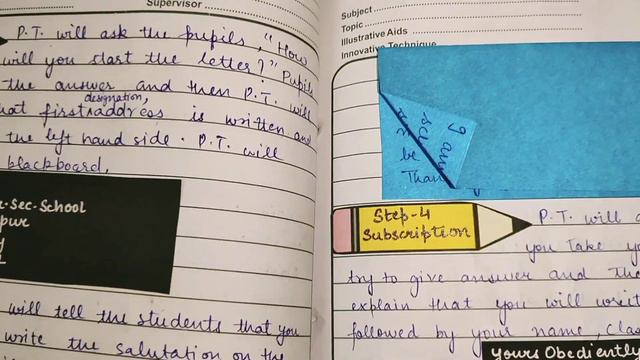 Supervisor
P.T. will ask the pupils, "How
will you start the letter?" Pupils
the answer and then P.T. will
designation,
at first address is written and
the left hand side. P.T. will
blackboard.
Sec-School
pur
will tell the students that you
write the salutation on the
Subject
Topic
Illustrative Aids
Innovative Technique
be
Than
Step-4
Subscription
P.T. will
you take
try to give answer and The
explain that you will
followed by your name, Clas
Yours Obediently